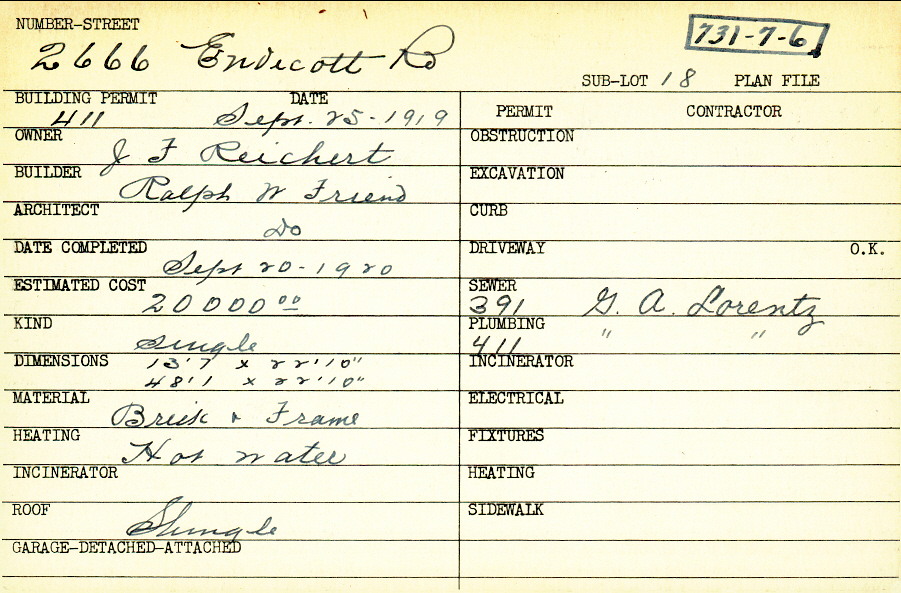 NUMBER-STREET
2666 Endicott Rd
731-7-6
SUB-LOT 18 PLAN FILE
BUILDING PERMIT DATE
411 Sept. 25-1919
PERMIT CONTRACTOR
OWNER J F Reichert
OBSTRUCTION
BUILDER Ralph W Friend
EXCAVATION
ARCHITECT Do
CURB
DATE COMPLETED Sept 20-1920
DRIVEWAY O.K.
ESTIMATED COST 20000 00
SEWER
391 G. A. Lorentz
KIND Single
PLUMBING
411 " "
DIMENSIONS 13'7 x 22'10"
48'1 x 22'10"
INCINERATOR
MATERIAL Brick & Frame
ELECTRICAL
HEATING Hot water
FIXTURES
INCINERATOR
HEATING
ROOF Shingle
SIDEWALK
GARAGE-DETACHED-ATTACHED